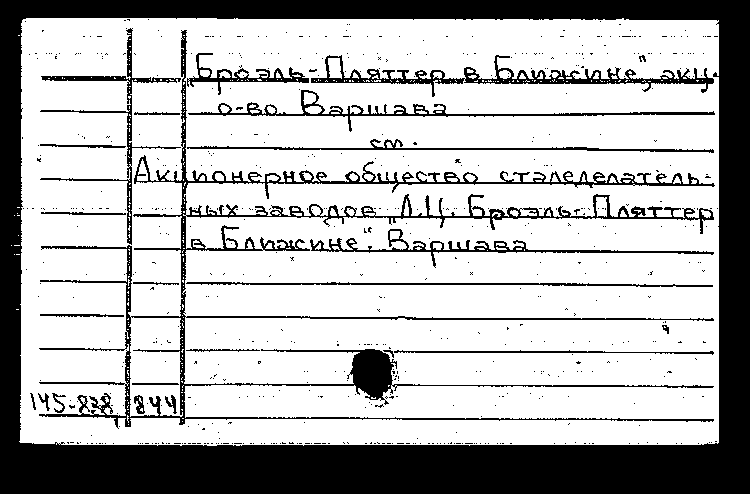 „Броэль-Пляттер в Ближине", акц.
о-во. Варшава
см.
Акционерное общество сталеделатель-
ных заводов „Л.Ц. Броэль-Пляттер
в Ближине". Варшава
145-838, 844